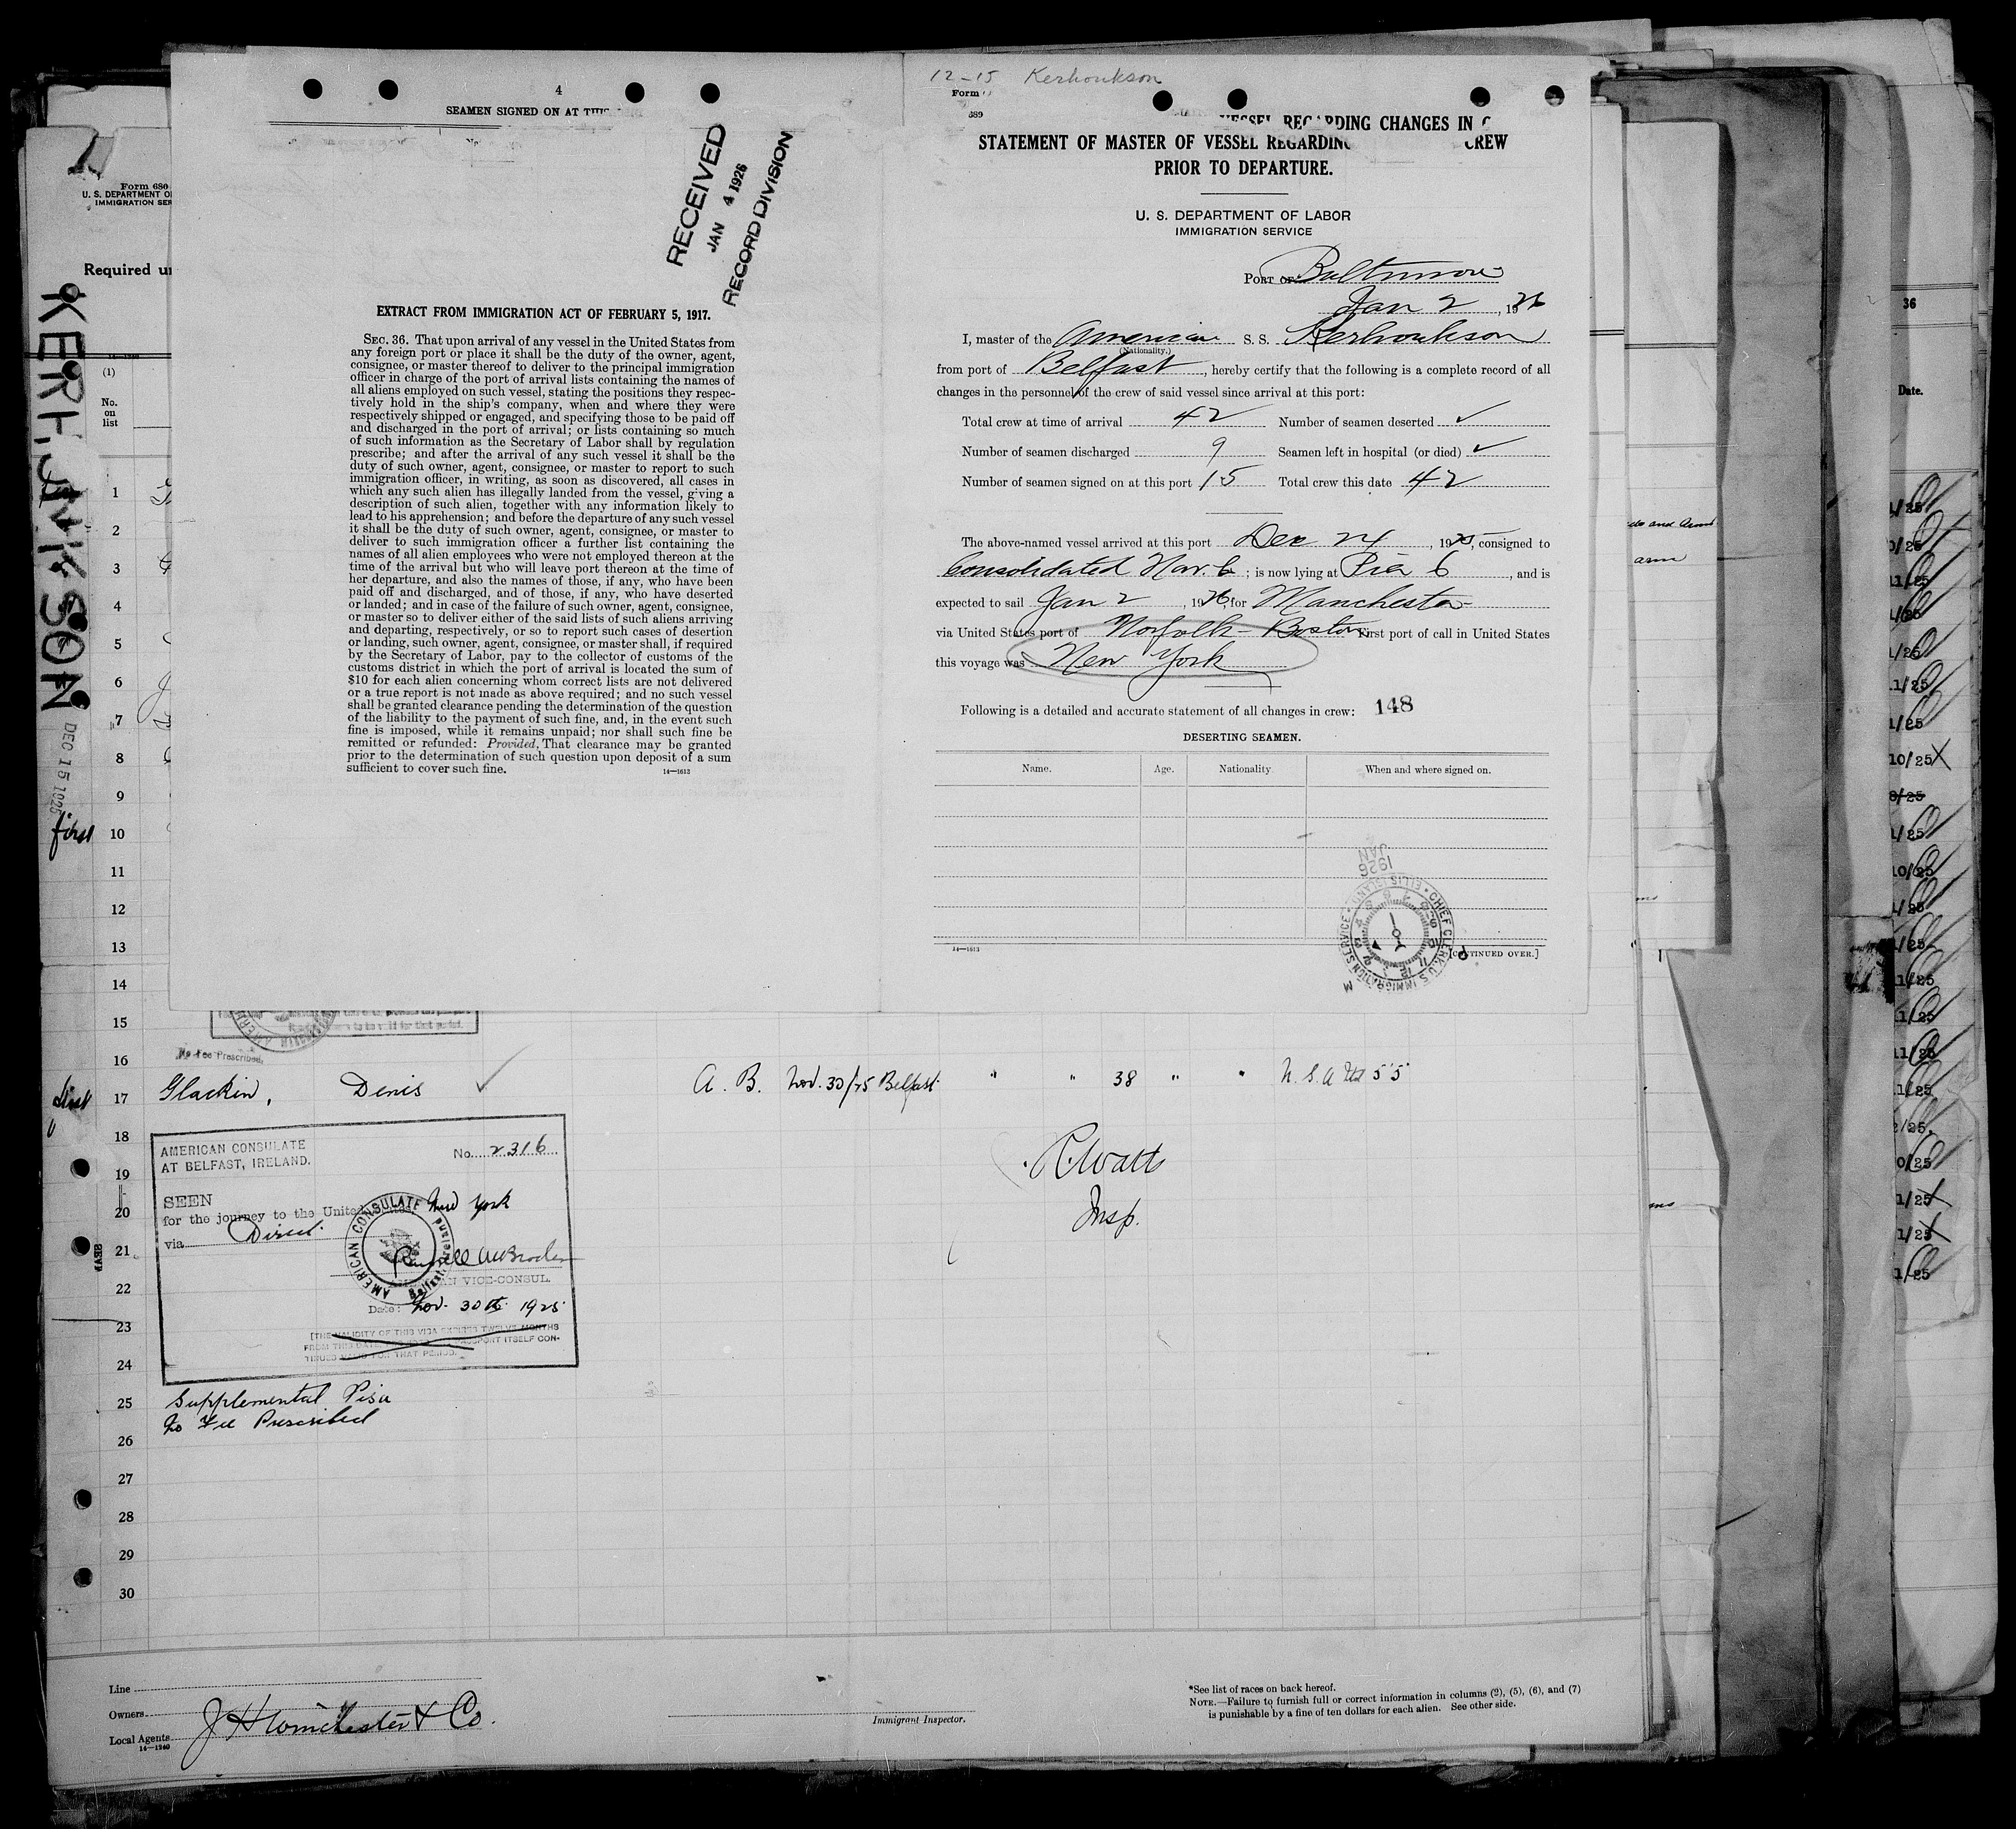 12-15 Kerhonkson
4
SEAMEN SIGNED ON AT THIS
RECEIVED
JAN 4 1926
RECORD DIVISION
EXTRACT FROM IMMIGRATION ACT OF FEBRUARY 5, 1917.
SEC. 36. That upon arrival of any vessel in the United States from
any foreign port or place it shall be the duty of the owner, agent,
consignee, or master thereof to deliver to the principal immigration
officer in charge of the port of arrival lists containing the names of
all aliens employed on such vessel, stating the positions they respec-
tively hold in the ship's company, when and where they were
respectively shipped or engaged, and specifying those to be paid off
and discharged in the port of arrival; or lists containing so much
of such information as the Secretary of Labor shall by regulation
prescribe; and after the arrival of any such vessel it shall be the
duty of such owner, agent, consignee, or master to report to such
immigration officer, in writing, as soon as discovered, all cases in
which any such alien has illegally landed from the vessel, giving a
description of such alien, together with any information likely to
lead to his apprehension; and before the departure of any such vessel
it shall be the duty of such owner, agent, consignee, or master to
deliver to such immigration officer a further list containing the
names of all alien employees who were not employed thereon at the
time of the arrival but who will leave port thereon at the time of
her departure, and also the names of those, if any, who have been
paid off and discharged, and of those, if any, who have deserted
or landed; and in case of the failure of such owner, agent, consignee,
or master so to deliver either of the said lists of such aliens arriving
and departing, respectively, or so to report such cases of desertion
or landing, such owner, agent, consignee, or master shall, if required
by the Secretary of Labor, pay to the collector of customs of the
customs district in which the port of arrival is located the sum of
$10 for each alien concerning whom correct lists are not delivered
or a true report is not made as above required; and no such vessel
shall be granted clearance pending the determination of the question
of the liability to the payment of such fine, and, in the event such
fine is imposed, while it remains unpaid; nor shall such fine be
remitted or refunded: Provided, That clearance may be granted
prior to the determination of such question upon deposit of a sum
sufficient to cover such fine.
14—1613
Form
689
VESSEL REGARDING CHANGES IN C
STATEMENT OF MASTER OF VESSEL REGARDING CREW
PRIOR TO DEPARTURE.
U. S. DEPARTMENT OF LABOR
IMMIGRATION SERVICE
PORT OF Baltimore
Jan 2, 1926
I, master of the American S. S. Kerhonkson
(Nationality.)
from port of Belfast, hereby certify that the following is a complete record of all
changes in the personnel of the crew of said vessel since arrival at this port:
Total crew at time of arrival 42 Number of seamen deserted ✓
Number of seamen discharged 9 Seamen left in hospital (or died) ✓
Number of seamen signed on at this port 15 Total crew this date 42
The above-named vessel arrived at this port Dec 24, 1925, consigned to
Consolidated Nav. C; is now lying at Pier 6, and is
expected to sail Jan 2, 1926, for Manchester
via United States port of Norfolk - Boston. First port of call in United States
this voyage was New York
Following is a detailed and accurate statement of all changes in crew: 148
DESERTING SEAMEN.
Name. Age. Nationality When and where signed on.
JAN
1926
CHIEF CLERK, U S IMMIGRATION SERVICE ELLIS ISLAND
14—1613
[CONTINUED OVER.]
Form 680
U. S. DEPARTMENT O
IMMIGRATION SER
Required un
KERHONKSON
DEC 15 1925
first
14—1240
(1)
No.
on
list
1
2
3
4
5
6
7
8
9
10
11
12
13
14
15
16
No Fee Prescribed.
first
17 Glackin, Denis ✓ A. B. Nov. 30/25 Belfast " " 38 " " N. S. A 5'5"
18
19
20
21
22
23
24
25
26
27
28
29
30
AMERICAN CONSULATE
AT BELFAST, IRELAND.
No. 2316
SEEN
for the journey to the United New York
via Direct
AMERICAN CONSULATE Belfast, Ireland
VICE-CONSUL.
Date: Nov. 30th 1925
[THE VALIDITY OF THIS VISA EXPIRES TWELVE MONTHS
FROM THIS DATE, PASSPORT ITSELF CON-
TINUES VALID FOR THAT PERIOD.
Supplemental Visa
No Fee Prescribed
R. Watts
Insp.
Line
Owners
Local Agents J H Winchester & Co.
14—1240
Immigrant Inspector.
*See list of races on back hereof.
NOTE.—Failure to furnish full or correct information in columns (2), (5), (6), and (7)
is punishable by a fine of ten dollars for each alien. See other side.
ds and arms
arm
ms
ms
36
Date.
1/25
0/25
11/25
1/25
1/25
11/25
1/25
10/25
8/25
1/25
10/25
1/25
1/25
11/25
11/25
11/25
11/25
2/25
0/25
1/25
1/25
1/25